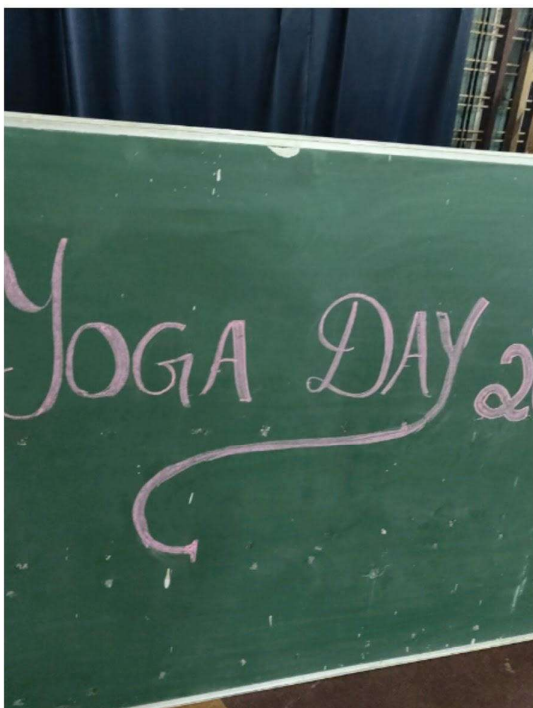 YOGA DAY 2